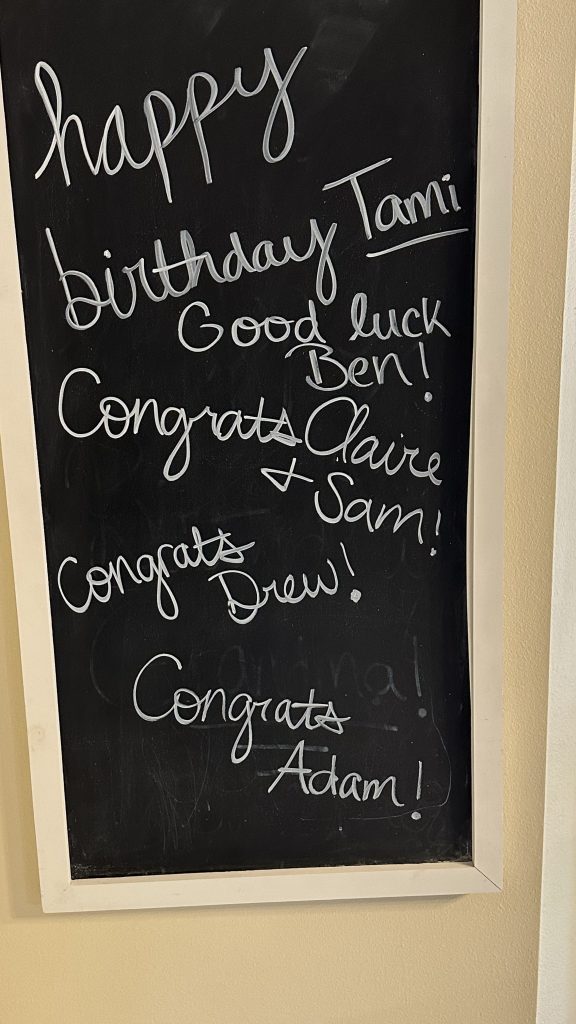 happy
birthday Tami
Good luck
Ben!
Congrats Claire
+ Sam!
Congrats
Drew!
Congrats
Adam!